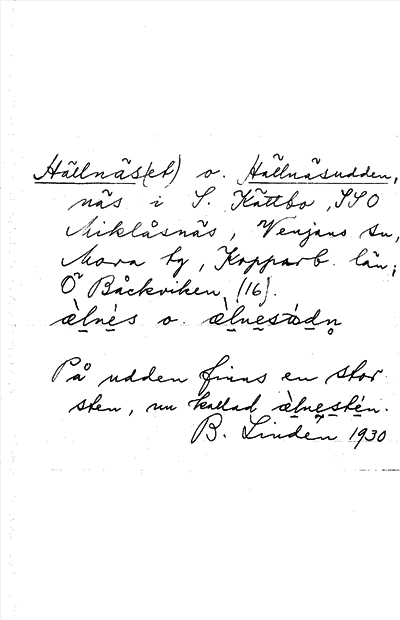 Hällnäs(et) o. Hällnäsudden,
näs i S. Kättbo, SSO
Miklåsnäs, Venjans sn,
Mora tg, Kopparb. län;
Ö Båckviken (16).
æ̀lnés o. æ̀lnesàdn̥
På udden finns en stor
sten, nu kallad æ̀lnestén.
B. Lindén 1930